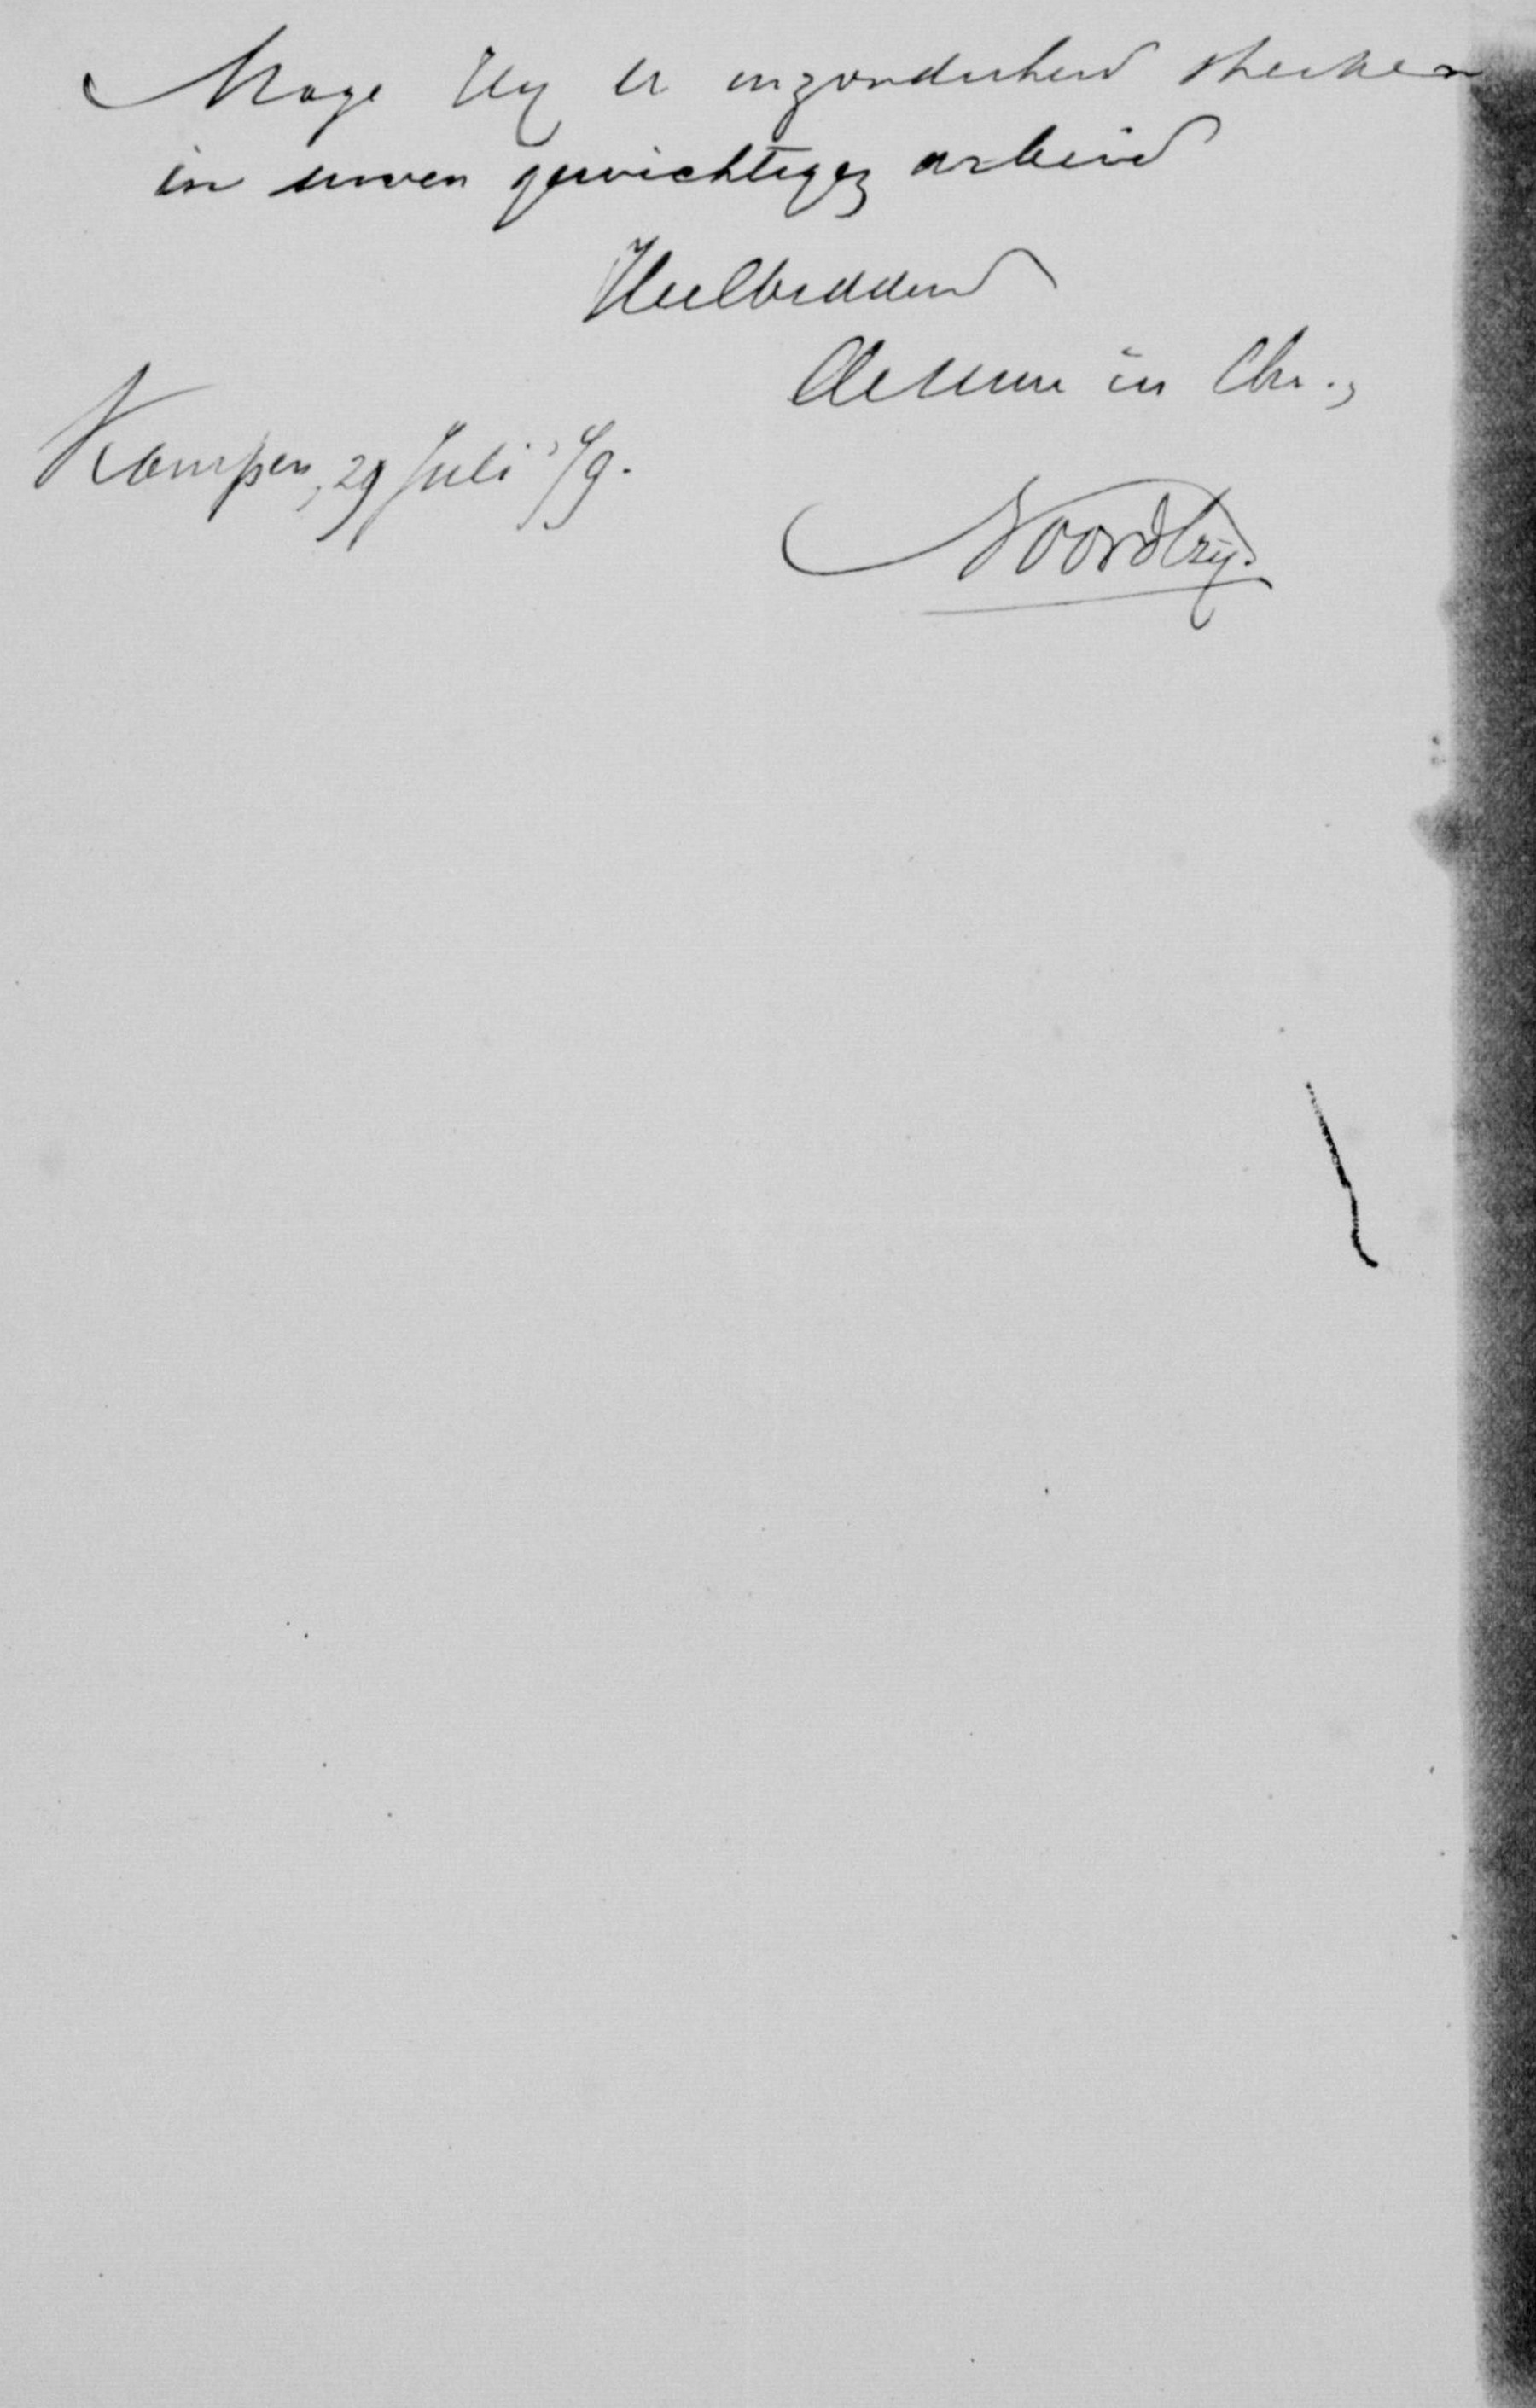 Moge Hij U inzonderheid sterken
in uwen gewichtigen arbeid
Heilbiddend
de Uwe in Chr.,
Kampen, 29 Juli '79.
Noordtzij.